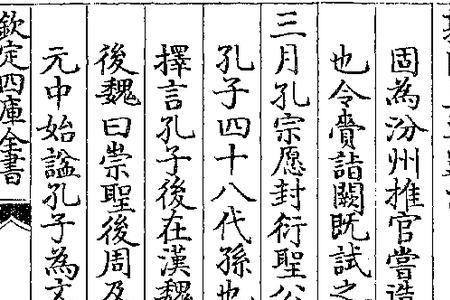 固為汾州推官嘗造
也令賫詣闕既試之
三月孔宗愿封衍聖公
孔子四十八代孫也
擇言孔子後在漢魏
後魏曰崇聖後周及
元中始諡孔子為文
欽定四庫全書